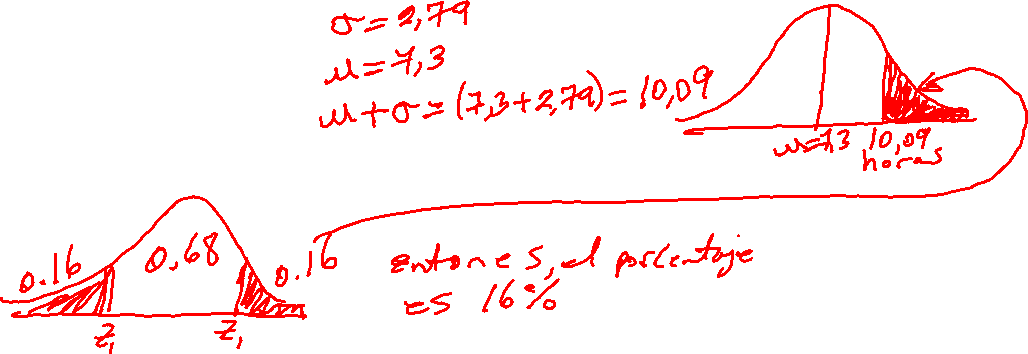 σ=2,79
μ=7,3
μ+σ=(7,3+2,79)=10,09
μ=7,3 10,09
horas
0.16 0,68 0.16
Z₁ Z₁
entones, el porcentaje
es 16%